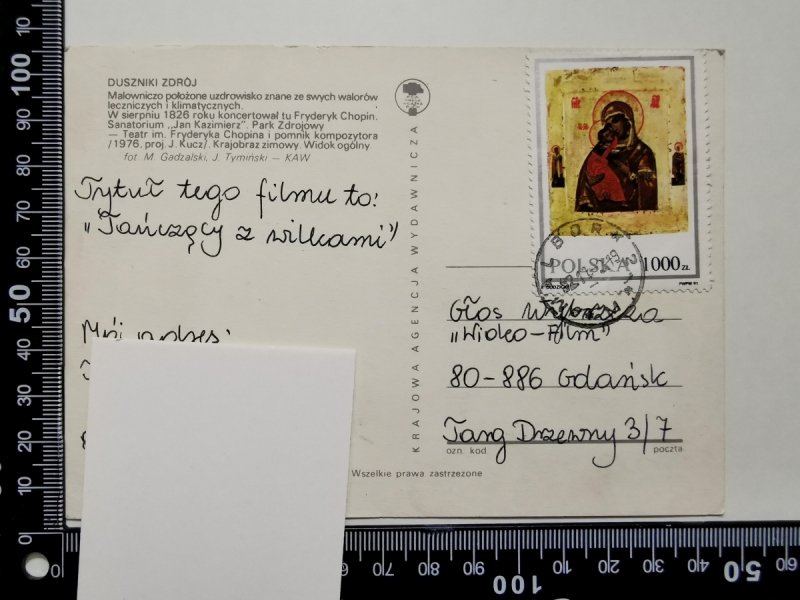 DUSZNIKI ZDRÓJ
Malowniczo położone uzdrowisko znane ze swych walorów
leczniczych i klimatycznych.
W sierpniu 1826 roku koncertował tu Fryderyk Chopin.
Sanatorium „Jan Kazimierz". Park Zdrojowy
— Teatr im. Fryderyka Chopina i pomnik kompozytora
/1976, proj. J. Kucz/. Krajobraz zimowy. Widok ogólny
fot M. Gadzalski, J. Tymiński — KAW
Tytuł tego filmu to:
„Tańczący z wilkami"
Mój adres:
KRAJOWA AGENCJA WYDAWNICZA
POLSKA 1000 zł
Głos
„Wideo-Film"
80-886 Gdańsk
Targ Drzewny 3/7
ozn. kod
poczta
Wszelkie prawa zastrzeżone
100
90
80
70
60
50
40
30
20
10
0
0
70
80
90
100
10
20
30
40
50